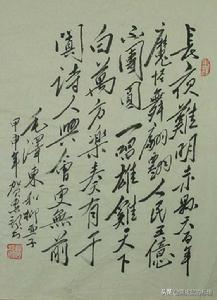 長夜難明赤縣天百年
魔怪舞翩躚人民五億
不團圓一唱雄雞天下
白萬方樂奏有于
闐詩人興會更無前
毛澤東和柳亞子
甲申年